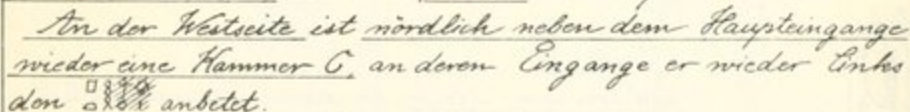 An der Westseite ist nördlich neben dem Haupteingange
wieder eine Kammer C, an deren Eingange er wieder links
den anbetet.